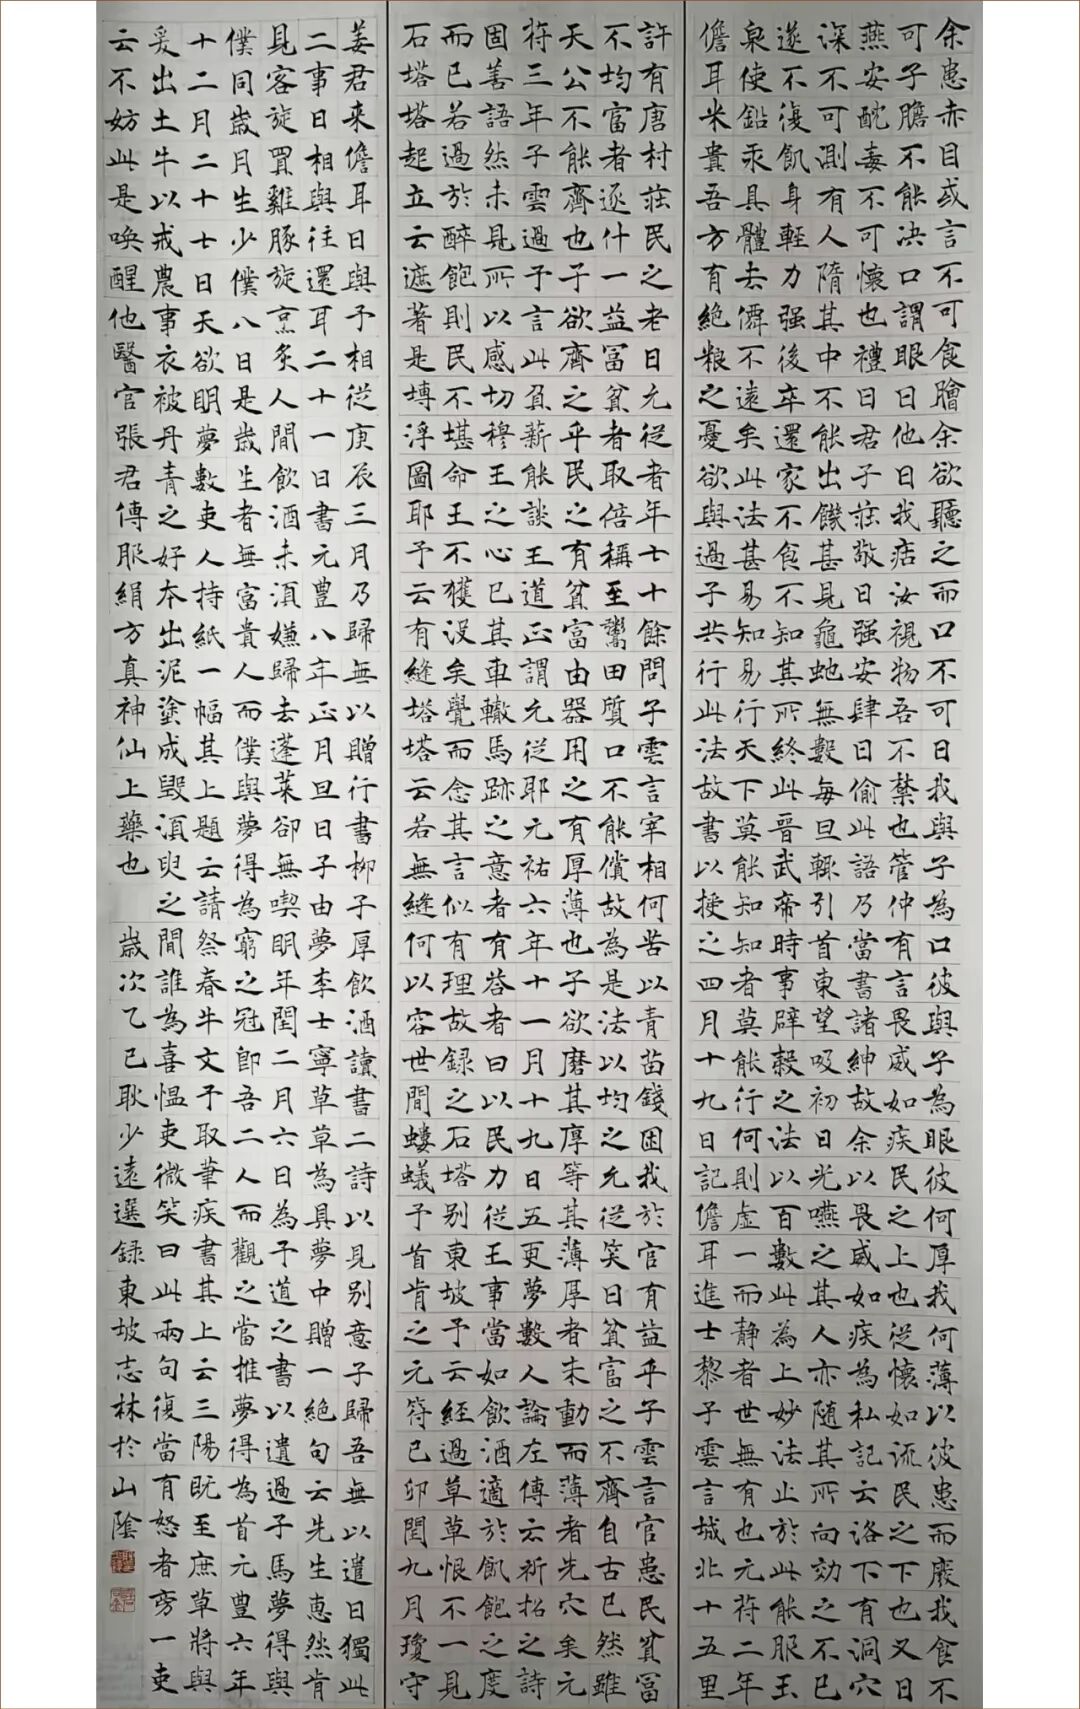 余患赤目或言不可食膾余欲聽之而口不可曰我與子為口彼與子為眼彼何厚我何薄以彼患而廢我食不
可子瞻不能決口謂眼曰他日我痁汝視物吾不禁也管仲有言畏威如疾民之上也從懷如流民之下也又曰
燕安酖毒不可懷也禮曰君子莊敬日强安肆日偷此語乃當書諸紳故余以畏威如疾為私記云洛下有洞穴
深不可測有人隋其中不能出饑甚見龜虵無數每旦輒引首東望吸初日光嚥之其人亦随其所向効之不已
遂不復飢身輕力强後卒還家不食不知其所終此晉武帝時事辟穀之法以百數此為上妙法止於此能服玉
泉使鉛汞具體去僊不遠矣此法甚易知易行天下莫能知知者莫能行何則虛一而静者世無有也元符二年
儋耳米貴吾方有絕粮之憂欲與過子共行此法故書以授之四月十九日記儋耳進士黎子雲言城北十五里
許有唐村莊民之老曰允從者年七十餘問子雲言宰相何苦以青苗錢困我於官有益乎子雲言官患民貧富
不均富者逐什一益富貧者取倍稱至鬻田質口不能償故為是法以均之允從笑曰貧富之不齊自古已然雖
天公不能齊也子欲齊之乎民之有貧富由器用之有厚薄也子欲磨其厚等其薄厚者未動而薄者先穴矣元
符三年子雲過予言此負薪能談王道正謂允從耶元祐六年十一月十九日五更夢數人論左傳云祈招之詩
固善語然未見所以感切穆王之心已其車轍馬跡之意者有荅者曰以民力從王事當如飲酒適於飢飽之度
而已若過於醉飽則民不堪命王不獲没矣覺而念其言似有理故録之石塔别東坡予云經過草草恨不一見
石塔塔起立云遮著是塼浮圖耶予云有縫塔塔云若無縫何以容世間螻蟻予首肯之元符己卯閏九月瓊守
姜君來儋耳日與予相從庚辰三月乃歸無以贈行書柳子厚飲酒讀書二詩以見别意子歸吾無以遣日獨此
二事日相與往還耳二十一日書元豐八年正月旦日子由夢李士寧草草為具夢中贈一絕句云先生惠然肯
見客旋買雞豚旋烹炙人間飲酒未須嫌歸去蓬萊卻無喫明年閏二月六日為予道之書以遺過子馬夢得與
僕同歲月生少僕八日是歲生者無富貴人而僕與夢得為窮之冠即吾二人而觀之當推夢得為首元豐六年
十二月二十七日天欲明夢數吏人持紙一幅其上題云請祭春牛文予取筆疾書其上云三陽既至庶草將與
爰出土牛以戒農事衣被丹青之好本出泥塗成毀須臾之間誰為喜愠吏微笑曰此兩句復當有怒者旁一吏
云不妨此是喚醒他醫官張君傳服絹方真神仙上藥也 歲次乙巳耿少遠選録東坡志林於山陰